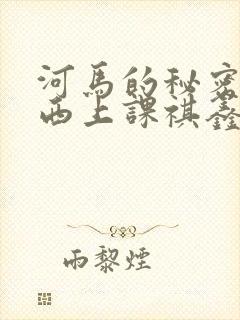 河馬的秘密
西上課祺鑫
雨黎煙